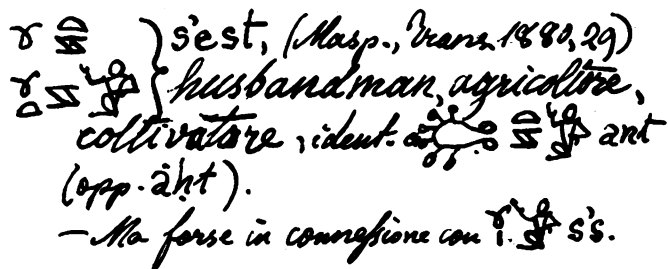 s'est, (Masp., Trans. 1880, 29)
husbandman, agricoltore,
coltivatore, ident. ant
(opp. äḥt).
— Ma forse in connessione con s's.